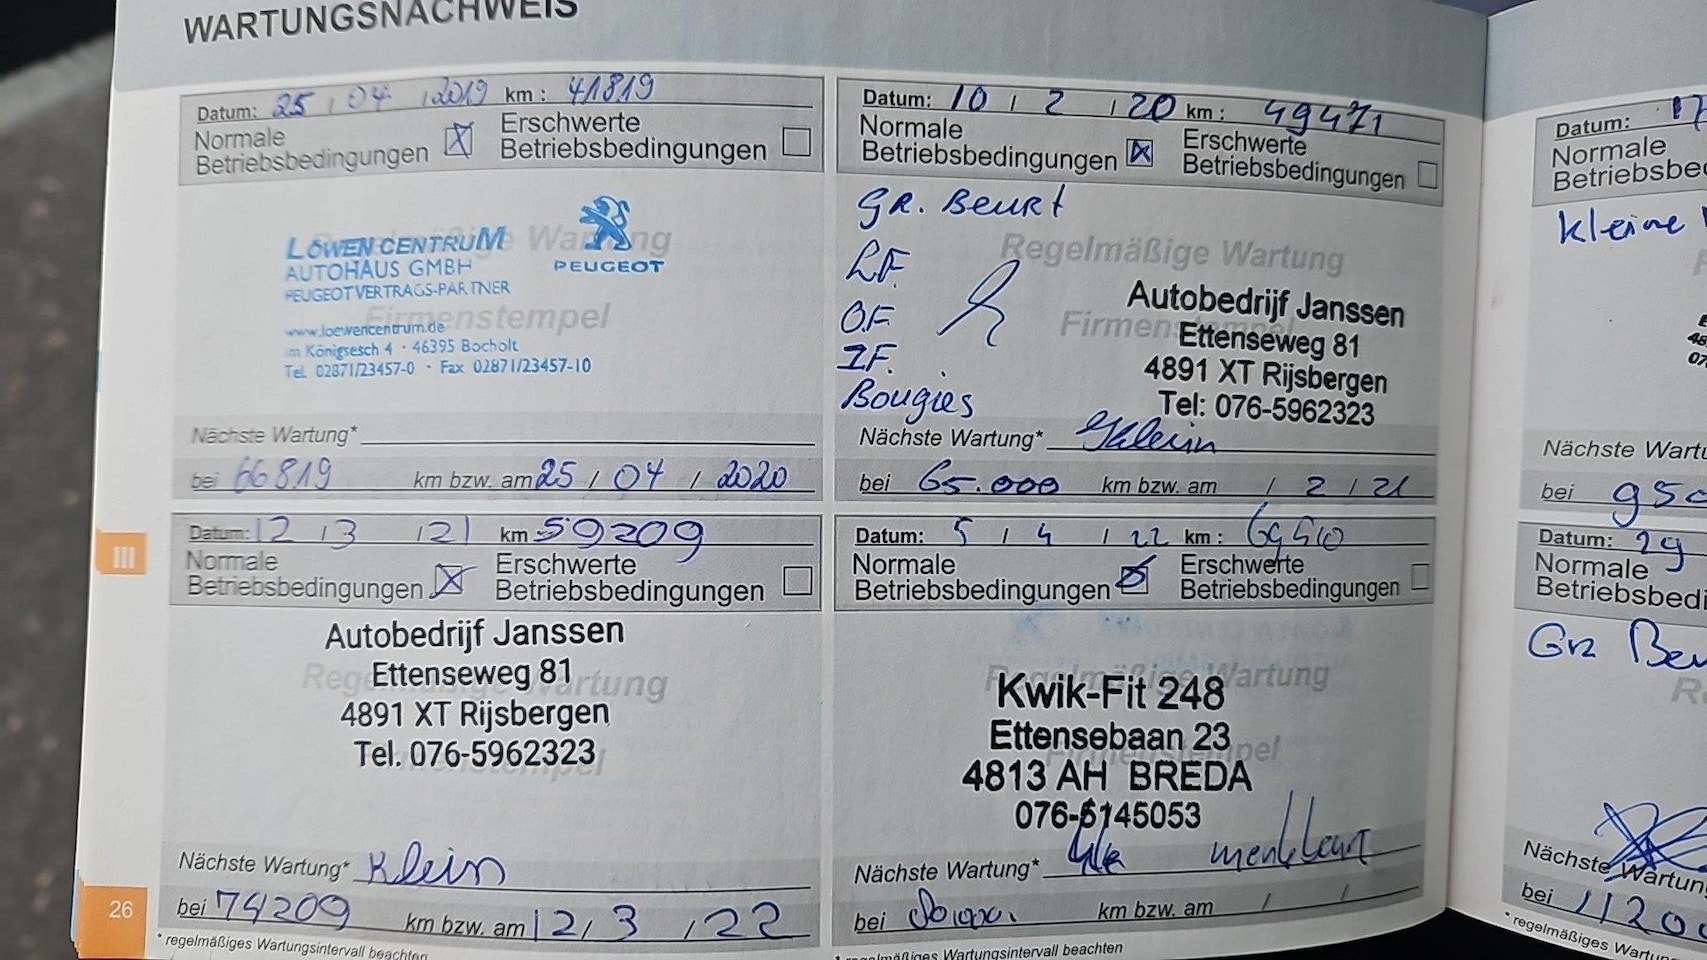 WARTUNGSNACHWEIS
Datum: 25 / 04 / 2019 km : 41819
Normale Betriebsbedingungen ☒ Erschwerte Betriebsbedingungen ☐
Regelmäßige Wartung
Firmenstempel
LÖWEN CENTRUM
AUTOHAUS GMBH
PEUGEOT VERTRAGS-PARTNER
PEUGEOT
www.loewencentrum.de
Im Königsesch 4 · 46395 Bocholt
Tel. 02871/23457-0 · Fax 02871/23457-10
Nächste Wartung*
bei 66819 km bzw. am 25 / 04 / 2020
Datum: 10 / 2 / 20 km : 49471
Normale Betriebsbedingungen ☒ Erschwerte Betriebsbedingungen ☐
GR. Beurt
L.F.
O.F.
I.F.
Bougies
Regelmäßige Wartung
Firmenstempel
Autobedrijf Janssen
Ettenseweg 81
4891 XT Rijsbergen
Tel: 076-5962323
Nächste Wartung* Klein
bei 65.000 km bzw. am / 2 / 21
Datum: 12 / 3 / 21 km 59209
Normale Betriebsbedingungen ☒ Erschwerte Betriebsbedingungen ☐
Regelmäßige Wartung
Firmenstempel
Autobedrijf Janssen
Ettenseweg 81
4891 XT Rijsbergen
Tel. 076-5962323
Nächste Wartung* Klein
bei 74209 km bzw. am 12 / 3 / 22
* regelmäßiges Wartungsintervall beachten
Datum: 5 / 4 / 22 km :
Normale Betriebsbedingungen ☒ Erschwerte Betriebsbedingungen ☐
Regelmäßige Wartung
Firmenstempel
Kwik-Fit 248
Ettensebaan 23
4813 AH BREDA
076-5145053
Nächste Wartung*
bei km bzw. am / /
* regelmäßiges Wartungsintervall beachten
III
26
Datum: 17
Normale
Betriebsbe
kleine
Nächste Wartu
bei 950
Datum: 29
Normale
Betriebsbedi
Grz Beu
Nächste Wartun
bei 1120
* regelmäßiges Wartu